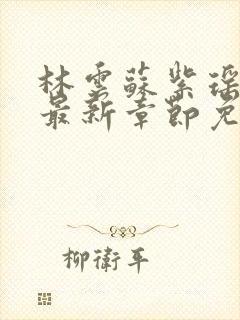 林雲蘇紫瑶
最新章節免
柳衛平